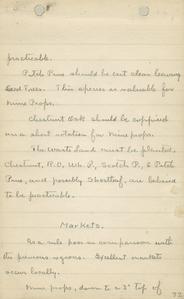 practicable.
Pitch Pine should be cut clean leaving
seed Trees. This species is valuable for
mine Props.
Chestnut Oak should be coppiced
on a short rotation for mine props.
The Waste Land must be planted.
Chestnut, R.O., Wh. P., Scotch P., & Pitch
Pine, and possibly Shortleaf, are believed
to be practicable.
Markets.
As a rule poor in comparison with
the previous regions. Excellent markets
occur locally.
Mine props, down to a 3" top of